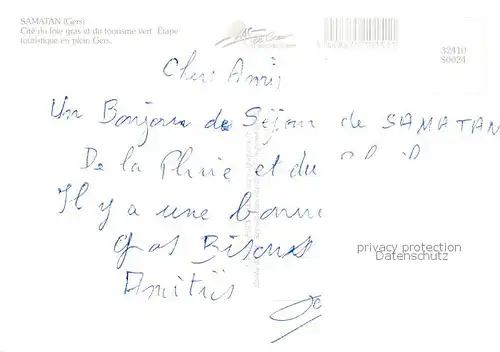 SAMATAN (Gers)
Cité du foie gras et du tourisme vert. Étape
touristique en plein Gers.
32410
S0024
Chers Amis
Un Bonjour de Séjour de SAMATAN
De la Pluie et du
Il y a une bonne
gros Bisous
Amitiés
privacy protection
Datenschutz